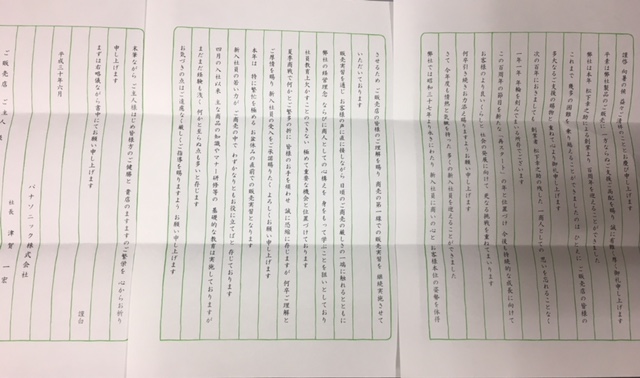 謹啓 向暑の候 益々ご清栄のこととお慶び申し上げます
平素は弊社製品のご販売に一方ならぬご支援ご高配を賜り 誠に有難く厚く御礼申し上げます
弊社は本年 松下幸之助による創業より 百周年を迎えることができました
これまで 幾多の困難も 乗り越えることができましたのは ひとえに ご販売店の皆様の
多大なるご支援の賜物と 重ねて心より御礼申し上げます
次の百年におきましても 創業者 松下幸之助の残した「一商人としての」思いを忘れることなく
一年一年 年輪を刻んでまいる所存でございます
この百周年の節目を新たな「再スタート」の年と位置づけ 今後も持続的な成長に向けて
お客様のより良いくらしと 社会の発展に向けて 更なる挑戦を重ねてまいります
何卒引き続きお力添えを賜りますよう お願い申し上げます
さて 今年度も情熱と気概を持った多くの新入社員を迎えることができました
弊社では昭和三十七年より永きにわたり 新入社員に商いの心と お客様本位の姿勢を体得
させるため ご販売店の皆様のご理解を賜り 商売の第一線での販売実習を 継続実施させて
いただいております
販売実習を通じ お客様の声に直に接しながら 日頃のご商売の厳しさの一端に触れるとともに
弊社の経営理念 ならびに商人としての心構えを 身をもって学ぶことを狙いとしており
社員教育上欠かすことのできない 極めて重要な機会と位置づけております
夏季商戦で何かとご繁多の折に 皆様のお手を煩わせ 誠に恐縮に存じますが 何卒ご理解と
ご厚情を賜り 新入社員の受入をご承諾賜りたく よろしくお願い申し上げます
本年は 特に繁忙を極める お盆休みの直前での販売実習となります
新入社員の若い力が ご商売の中で わずかなりともお役に立てばと 存じております
四月の入社以来 主な商品の知識やマナー研修等の 基礎的な教育は実施しておりますが
まだまだ経験も浅く 何かと至らぬ点も多いと存じます
お気づきの点はご遠慮なく厳しくご指導を賜りますよう お願い申し上げます
末筆ながら ご主人様はじめ皆様方のご健勝と 貴店のますますのご繁栄を 心からお祈り
申し上げます
まずは右略儀ながら書中にてお願い申し上げます
謹白
平成三十年六月
パナソニック株式会社
社長 津賀 一宏
ご販売店 ご主人